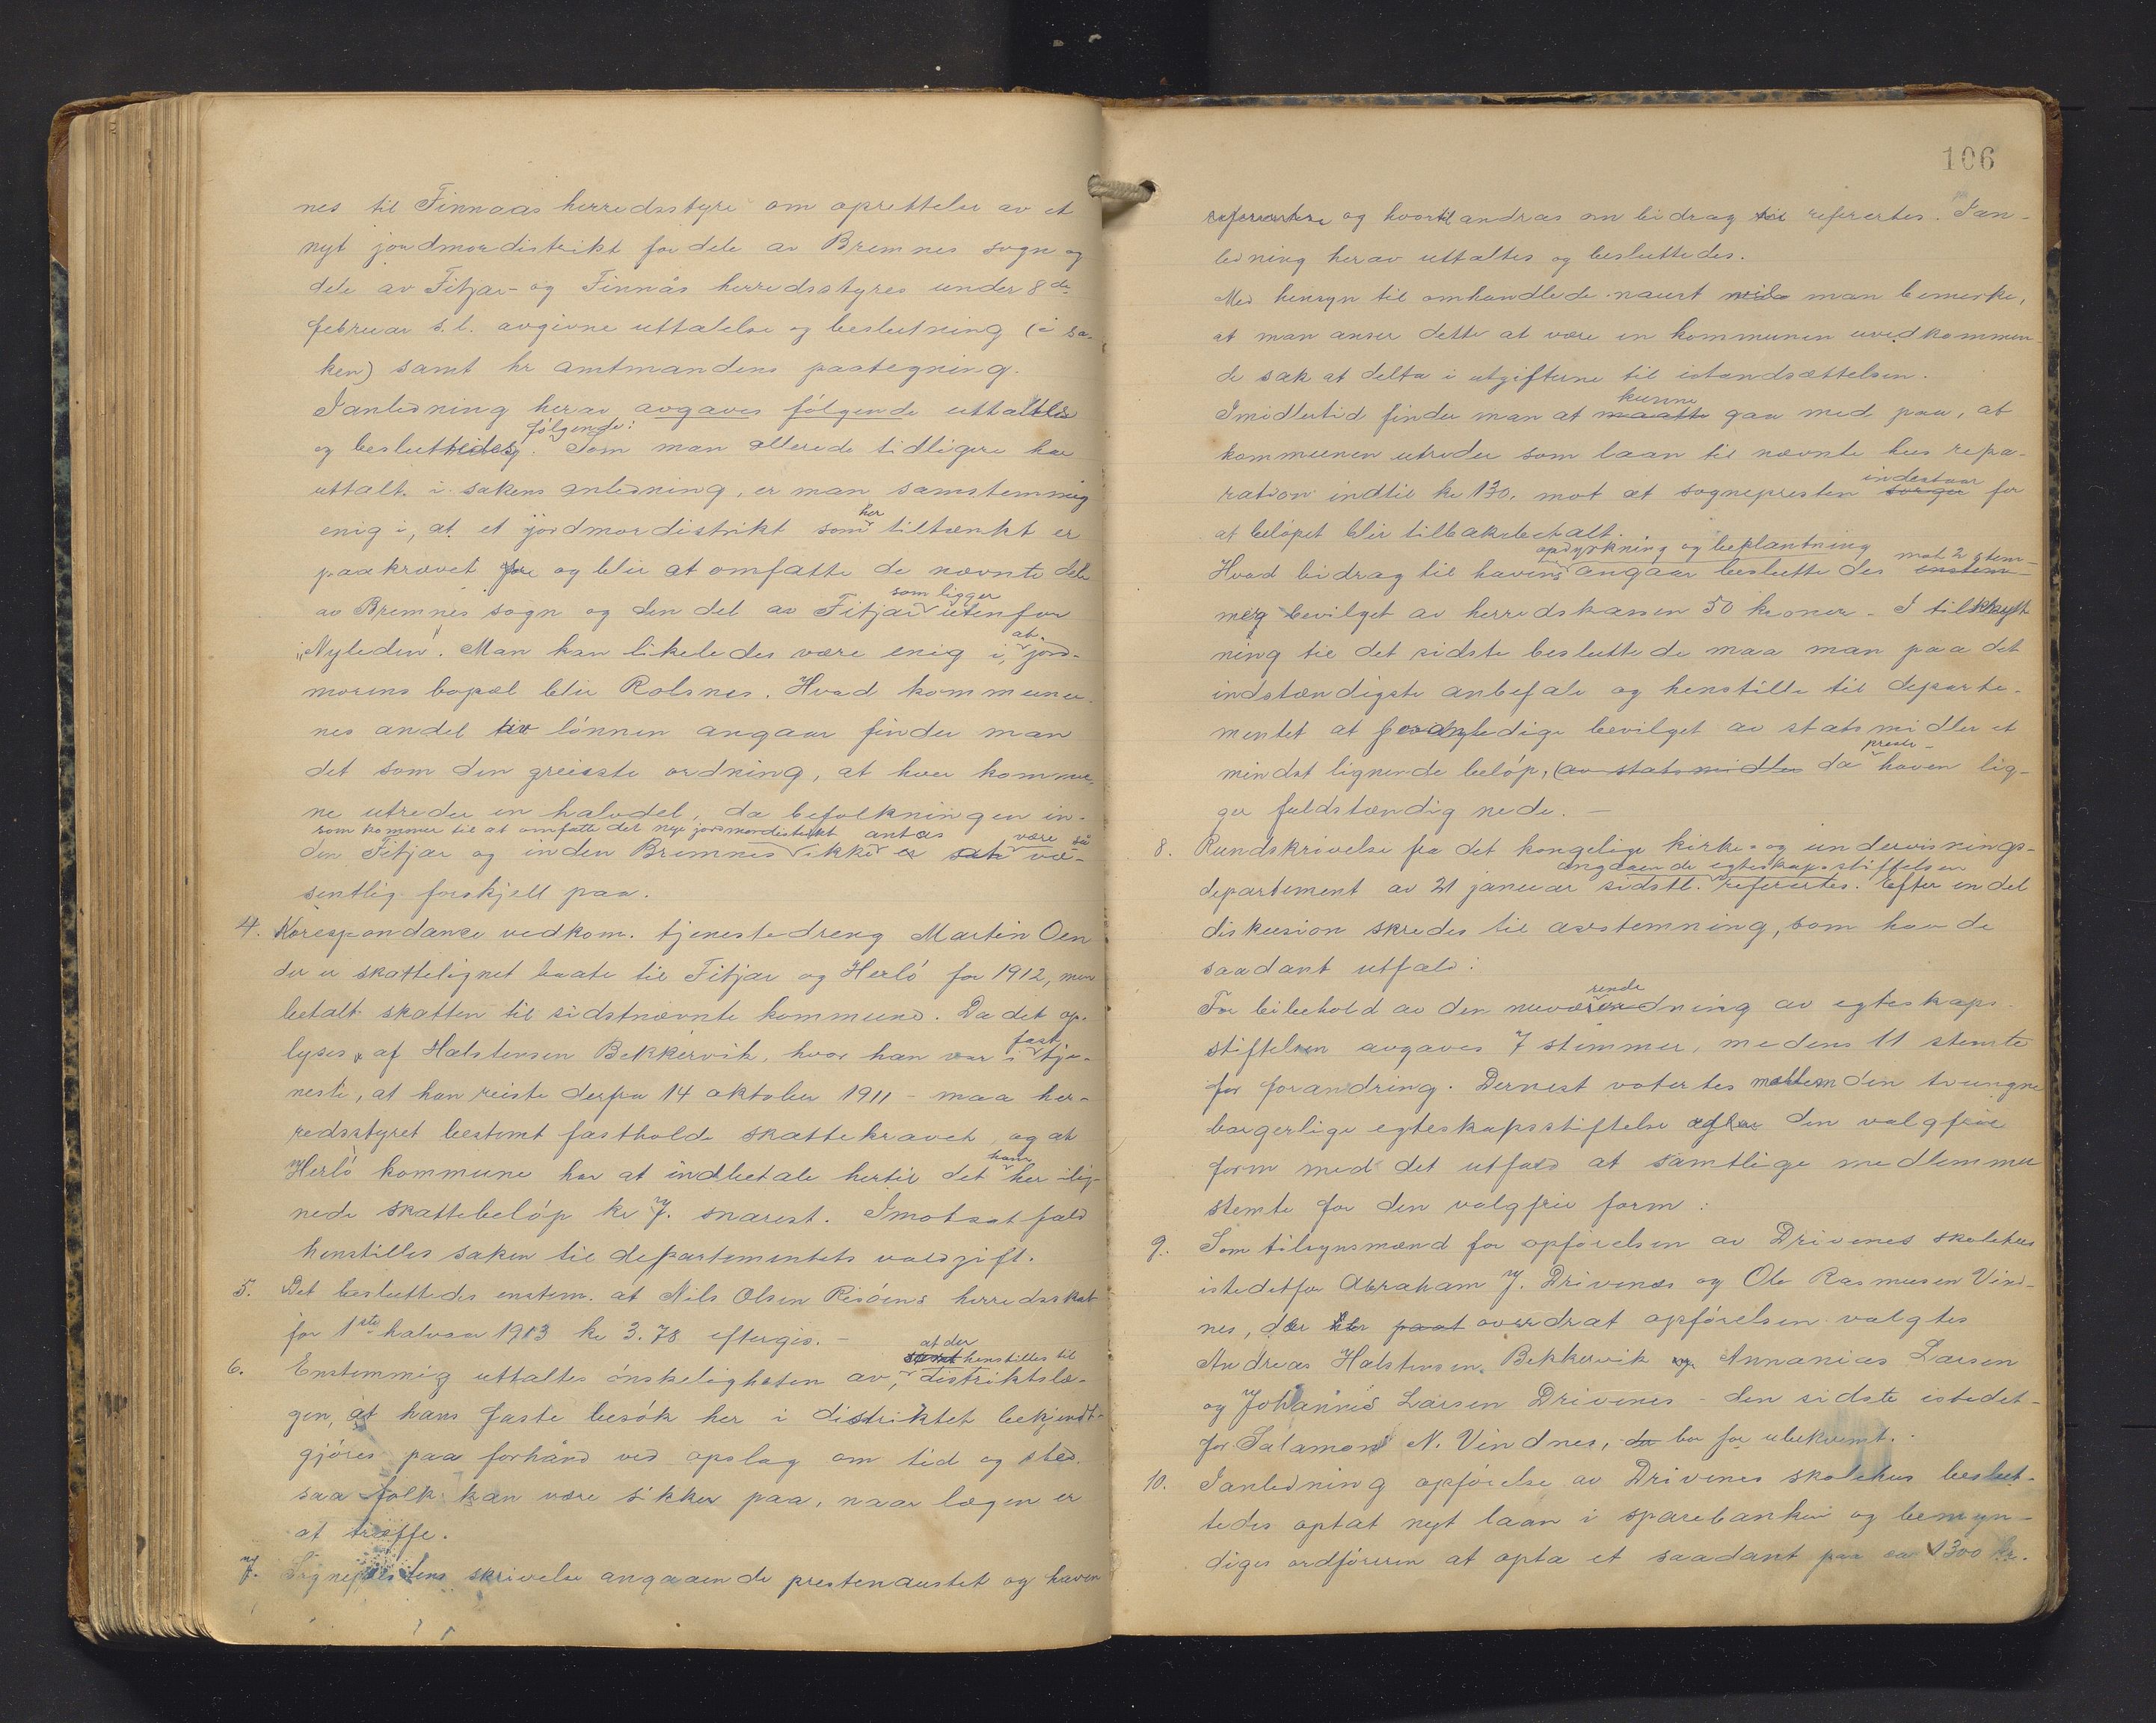 nes til Finnaas herredsstyre om oprettelse av et
nyt jordmordistrikt for dele av Bremnes sogn og
dele av Fitjar- og Finnås herredsstyres under 8de
februar s.l. avgivne uttalelse og beslutning (i sa-
ken) samt hr amtmandens paategning.
I anledning herav avgaves følgende uttaltes
følgende:
og besluttedes. Som man allerede tidligere har
uttalt i sakens anledning, er man samstemmig
her
enig i, at et jordmordistrikt som tiltænkt er
paakrævet og blir at omfatte de nævnte dele
som ligger
av Bremnes sogn og den del av Fitjar utenfor
at
"Nyleden". Man kan likeledes være enig i, jord-
morens bopæl blir Rolsnes. Hvad kommuner-
nes andel av lønnen angaar finder man
det som den greieste ordning, at hver kommu-
ne utreder en halvdel, da befolkningen in-
som kommer til at omfatte det nye jordmordistrikt antas være så
den Fitjar og inden Bremnes ikke er sak væ-
sentlig forskjell paa.
4. Korespondance vedkom. tjenestedreng Martin Oen
der er skattelignet baate til Fitjar og Herlø for 1912, men
betalt skatten til sidstnævnte kommune. Da det op-
fast
lyses af Halstensen Bekkervik, hvor han var i tje-
neste, at han reiste derfra 14 oktober 1911 - maa her-
redsstyret bestemt fastholde skattekravet, og at
ham
Herlø kommune har at indbetale hertil det her ilig-
nede skattebeløp kr 7. snarest. I motsat fald
henstilles saken til departementets voldgift.
5. Det besluttedes enstem. at Nils Olsen Risøens herredsskat
for 1ste halvaar 1913 kr 3.78 eftergis. -
at der
samt henstilles til
6. Enstemmig uttaltes ønskeligheten av, distriktslæ-
gen, at hans faste besøk her i distriktet bekjendt-
gjøres paa forhånd ved opslag om tid og sted.
saa folk kan være sikker paa, naar lægen er
at træffe.
7. Sognepræstens skrivelse angaaende prestenaustet og haven
106
og hvortil andras om bidrag til refertes. I an-
ledning herav uttaltes og besluttedes.
Med hensyn til omhandlede naust vil man bemerke,
at man anser dette at være en kommunen uvedkommen
de sak at delta i utgifterne til istandsættelsen.
kunne
Imidlertid finder man at maatte gaa med paa, at
kommunen utreder som laan til nævnte hus repa-
indestaar
ration indtil kr 130, mot at sognepresten sørger for
at beløpet blir tilbakebetalt.
opdyrkning og beplantning mot 2 stem-
Hvad bidrag til havens angaar besluttedes enstem-
mig bevilget av herredskassen 50 kroner - I tilknyt
ning til det sidste besluttede maa man paa det
indstændigste anbefale og henstille til departe-
mentet at godhedig bevilget av statsmidler et
preste-
mindst lignende beløp, (av statsmidler da haven lig-
ger fuldstændig nede. -
8. Rundskrivelse fra det kongelige kirke- og undervisnings-
angaaende egteskapsstiftelsen
departement av 21 januar sidstl. refertes. Efter endel
diskusion skredes til avstemning, som havde
saadant utfald:
rende
For bibehold av den nuværordning av egteskaps-
stiftelsen avgaves 7 stemmer, medens 11 stemte
for forandring. Dernest votertes mellem den tvungne
borgerlige egteskapsstiftelse eller den valgfrie
form med det utfald at samtlige medlemmer
stemte for den valgfrie form:
9. Som tilsynsmænd for opførelsen av Drivenes skolehus
istedetfor Abraham J. Drivenes og Ole Rasmussen Vind-
nes, der har paat overdrat opførelsen valgtes
Andreas Halstensen Bekkervik og Annanias Larsen
og Johannes Larsen Drivenes - den sidste istedet-
for Salamon N. Vindnes, der bor for ubekvemt.
10. I anledning opførelse av Drivenes skolehus beslut-
tedes optat nyt laan i sparebanken og bemyn-
diges ordføreren at opta et saadant paa ca 1300 kr.